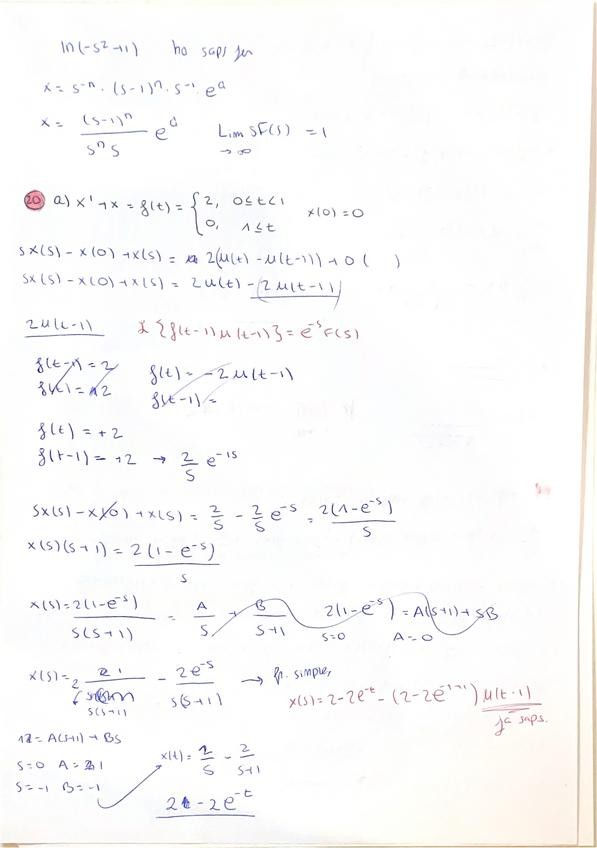 ln(-s²+1) ho saps fer
x = s⁻ⁿ · (s-1)ⁿ · s⁻¹ · eᵃ
x = (s-1)ⁿ / sⁿ s eᵃ Lim SF(s) = 1
→ ∞
20 a) x' + x = f(t) = { 2, 0≤t<1 x(0) = 0
0, 1≤t
sx(s) - x(0) + x(s) = 2(μ(t) - μ(t-1)) + 0 ( )
sx(s) - x(0) + x(s) = 2μ(t) - (2μ(t-1))
2μ(t-1) ℒ{f(t-1)μ(t-1)} = e⁻ˢF(s)
f(t-1) = 2 f(t) = -2μ(t-1)
f(t) = 2 f(t-1) =
f(t) = +2
f(t-1) = +2 → 2/s e⁻¹ˢ
sx(s) - x(0) + x(s) = 2/s - 2/s e⁻ˢ = 2(1-e⁻ˢ)/s
x(s)(s+1) = 2(1-e⁻ˢ)/s
x(s) = 2(1-e⁻ˢ)/s(s+1) = A/s + B/s+1 2(1-e⁻ˢ) = A(s+1) + sB
s=0 A=0
x(s) = 2 1/s(s+1) - 2e⁻ˢ/s(s+1) → fr. simples
x(s) = 2-2e⁻ᵗ - (2-2e⁻ᵗ⁺¹) μ(t-1)
ja saps.
1 = A(s+1) + Bs
s=0 A=1 x(t) = 2/s - 2/s+1
s=-1 B=-1
2-2e⁻ᵗ